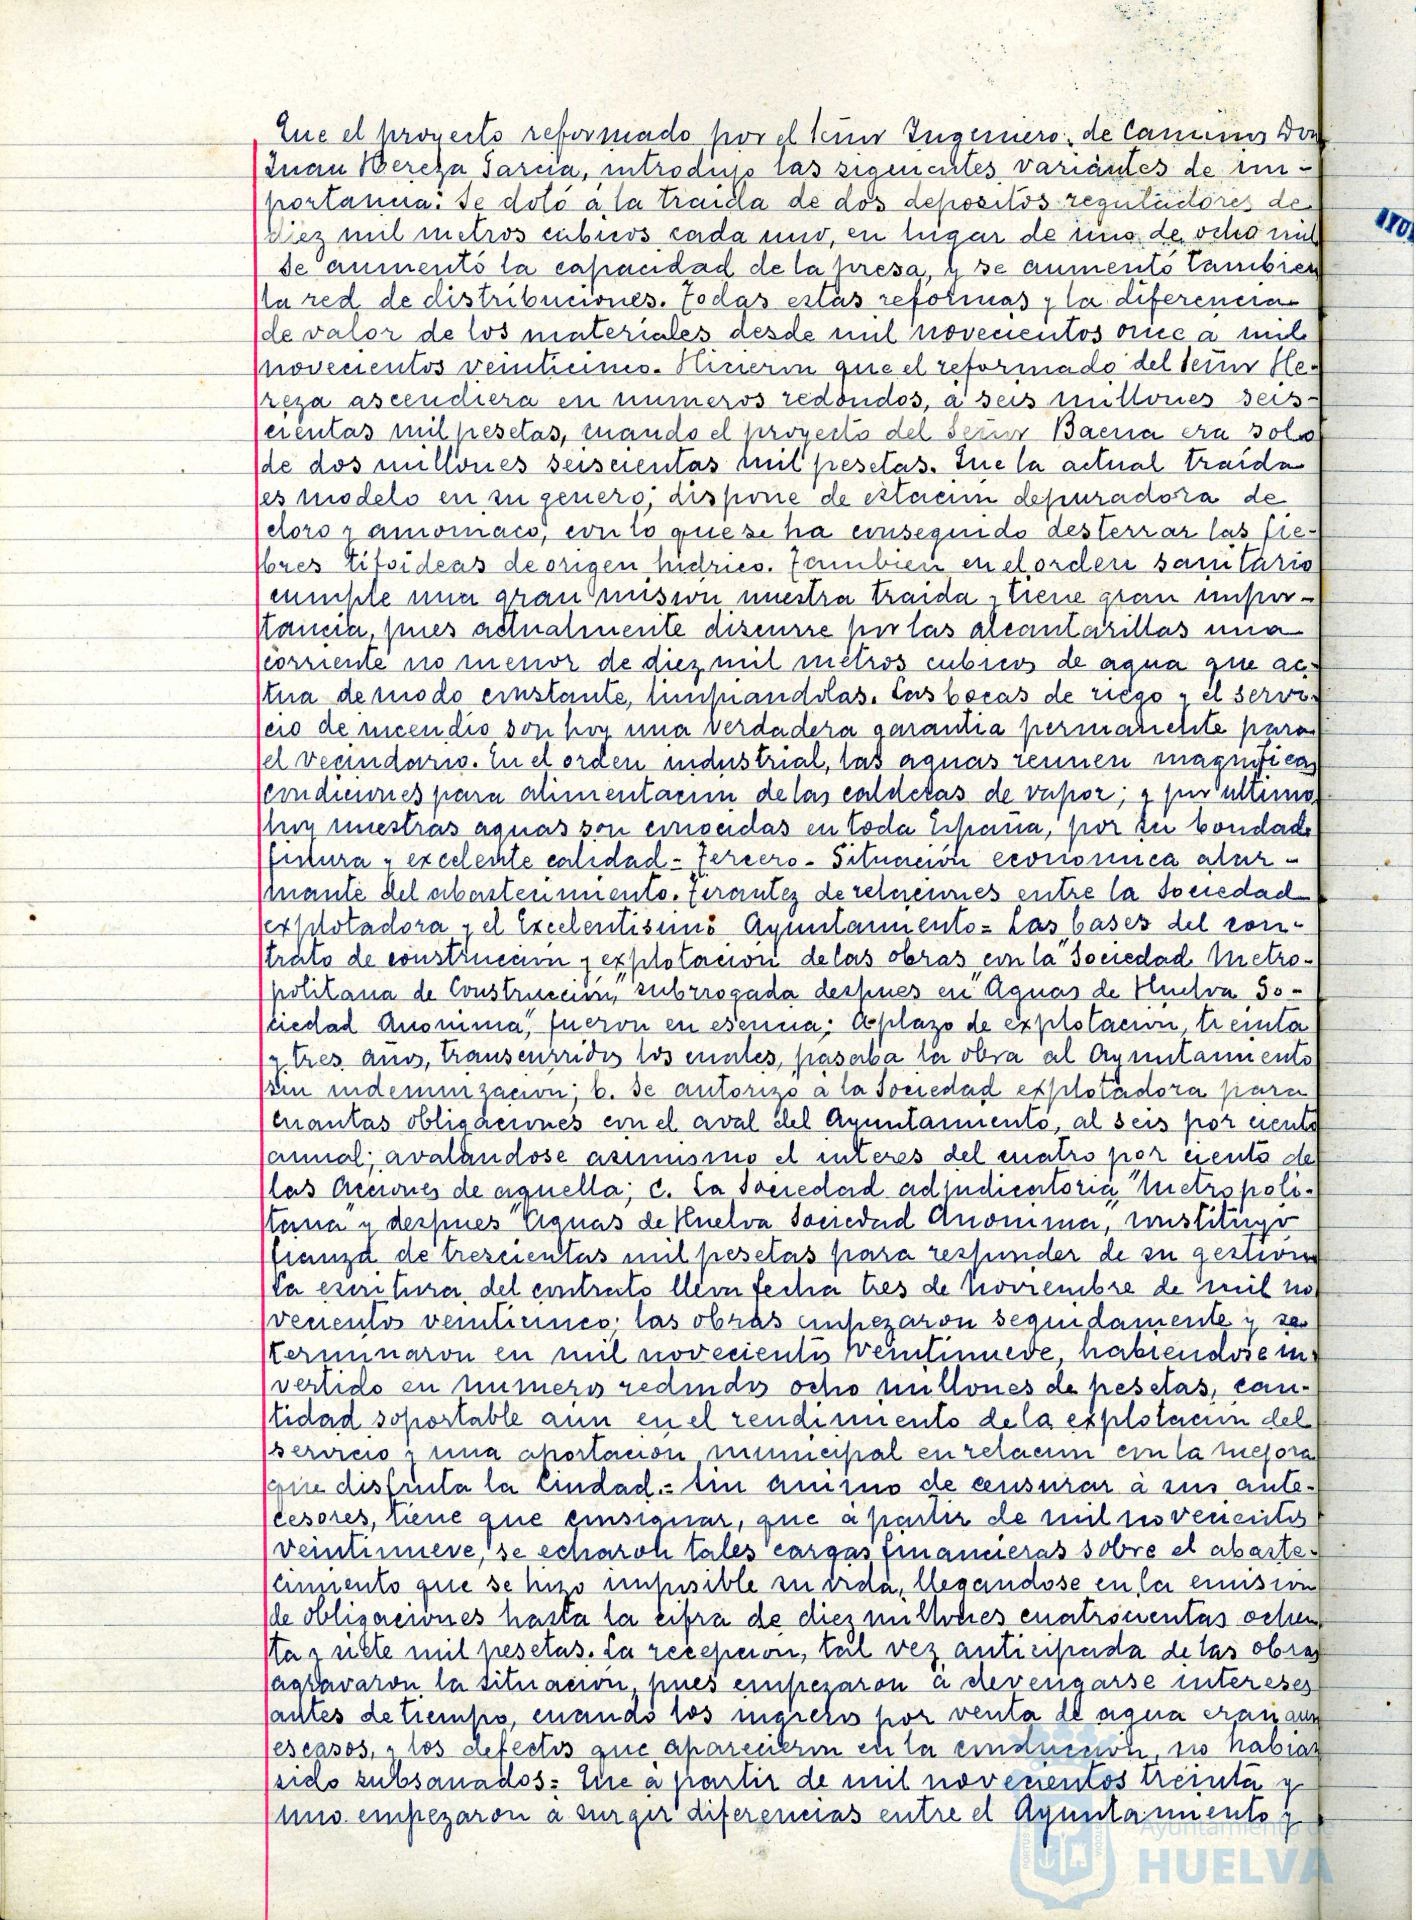 Que el proyecto reformado por el Señor Ingeniero de Caminos Don
Juan Hereza Garcia, introdujo las siguientes variántes de im-
portancia: Se dotó á la traida de dos depositos reguladores de
diez mil metros cubicos cada uno, en lugar de uno de ocho mil
Se aumentó la capacidad de la presa, y se aumentó tambien
la red de distribuciones. Todas estas reformas y la diferencia
de valor de los materiales desde mil novecientos once a mil
novecientos veinticinco. Hicieron que el reformado del Señor He-
reza ascendiera en numeros redondos, a seis millones seis-
cientas mil pesetas, cuando el proyecto del Señor Baena era solo
de dos millones seiscientas mil pesetas. Que la actual traída
es modelo en su genero; dispone de estación depuradora de
cloro y amoniaco, con lo que se ha conseguido desterrar las fie-
bres tifoideas de origen hidrico. Tambien en el orden sanitario
cumple una gran misión nuestra traida y tiene gran impor-
tancia, pues actualmente discurre por las alcantarillas una
corriente no menor de diez mil metros cubicos de agua que ac-
tua de modo constante, limpiandolas. Las bocas de riego y el servi-
cio de incendio son hoy una verdadera garantia permanente para
el vecindario. En el orden industrial, las aguas reunen magnificas
condiciones para alimentacion de las calderas de vapor; y por ultimo
hoy nuestras aguas son conocidas en toda España, por su bondad
finura y excelente calidad = Tercero - Situación economica alar-
mante del abastecimiento. Tirantez de relaciones entre la Sociedad
explotadora y el Excelentisimo Ayuntamiento = Las bases del con-
trato de construcción y explotación de las obras con la "Sociedad Metro-
politana de Construcción," subrrogada despues en "Aguas de Huelva So-
ciedad Anonima", fueron en esencia; a. plazo de explotacion, treinta
y tres años, transcurridos los cuales, pasaba la obra al Ayuntamiento
sin indemnizacion; b. Se autorizó a la Sociedad explotadora para
cuantas obligaciones con el aval del Ayuntamiento, al seis por ciento
anual; avalandose asimismo el interes del cuatro por ciento de
las Acciones de aquella; c. La Sociedad adjudicatoria, "Metropoli-
tana" y despues "Aguas de Huelva Sociedad Anonima", constituyó
fianza de trescientas mil pesetas para responder de su gestión
La escritura del contrato lleva fecha tres de Noviembre de mil no
vecientos veinticinco; las obras empezaron seguidamente y se
terminaron en mil novecientos veintinueve, habiendose in-
vertido en numeros redondos ocho millones de pesetas, can-
tidad soportable aún en el rendimiento de la explotación del
servicio y una aportación municipal en relacion con la mejora
que disfruta la Ciudad.= Sin animo de censurar á sus ante-
cesores, tiene que consignar, que á partir de mil novecientos
veintinueve, se echaron tales cargas financieras sobre el abaste-
cimiento que se hizo imposible su vida, llegandose en la emisión
de obligaciones hasta la cifra de diez millones cuatrocientas ochen
ta y siete mil pesetas. La recepcion, tal vez anticipada de las obras
agravaron la situación, pues empezaron á devengarse intereses
antes de tiempo, cuando los ingresos por venta de agua eran aun
escasos, y los defectos que aparecieron en la conducción, no habian
sido subsanados = Que á partir de mil novecientos treinta y
uno empezaron á surgir diferencias entre el Ayuntamiento y
Ayuntamiento de
HUELVA